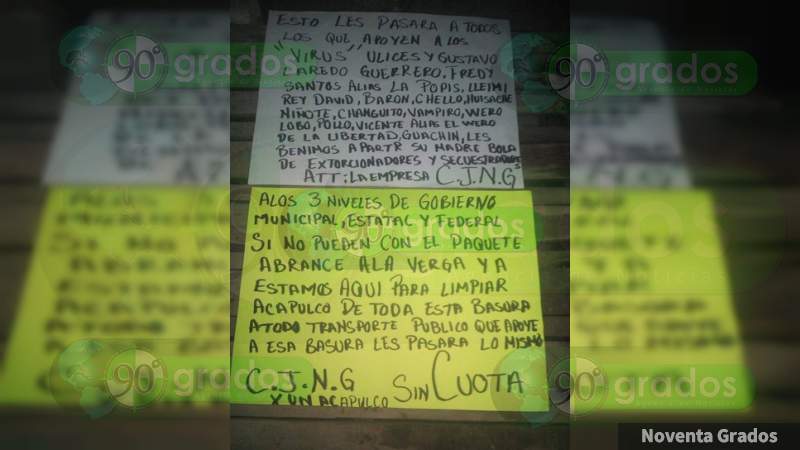 ESTO LES PASARA A TODOS
LOS QUE APOYEN A LOS
"VIRUS" ULICES Y GUSTAVO
LAREDO GUERRERO, FREDY
SANTOS ALIAS LA POPIS, LLEIMI
REY DAVID, BARON, CHELLO, HUISACHE
NIÑOTE, CHANGUITO, VAMPIRO, WERO
LOBO, POLLO, VICENTE ALIAS EL WERO
DE LA LIBERTAD, GUACHIN, LES
BENIMOS A PARTR SU MADRE BOLA
DE EXTORCIONADORES Y SECUESTRADORES
ATT: LA EMPRESA C.J.N.G
ALOS 3 NIVELES DE GOBIERNO
MUNICIPAL, ESTATAL Y FEDERAL
SI NO PUEDEN CON EL PAQUETE
ABRANCE ALA VERGA YA
ESTAMOS AQUI PARA LIMPIAR
ACAPULCO DE TODA ESTA BASURA
ATODO TRANSPORTE PUBLICO QUE APOYE
A ESA BASURA LES PASARA LO MISMO
C.J.N.G SIN CUOTA
X UN ACAPULCO
90° grados
90° grados
90° grados
90° grados
90° grados
Noventa Grados